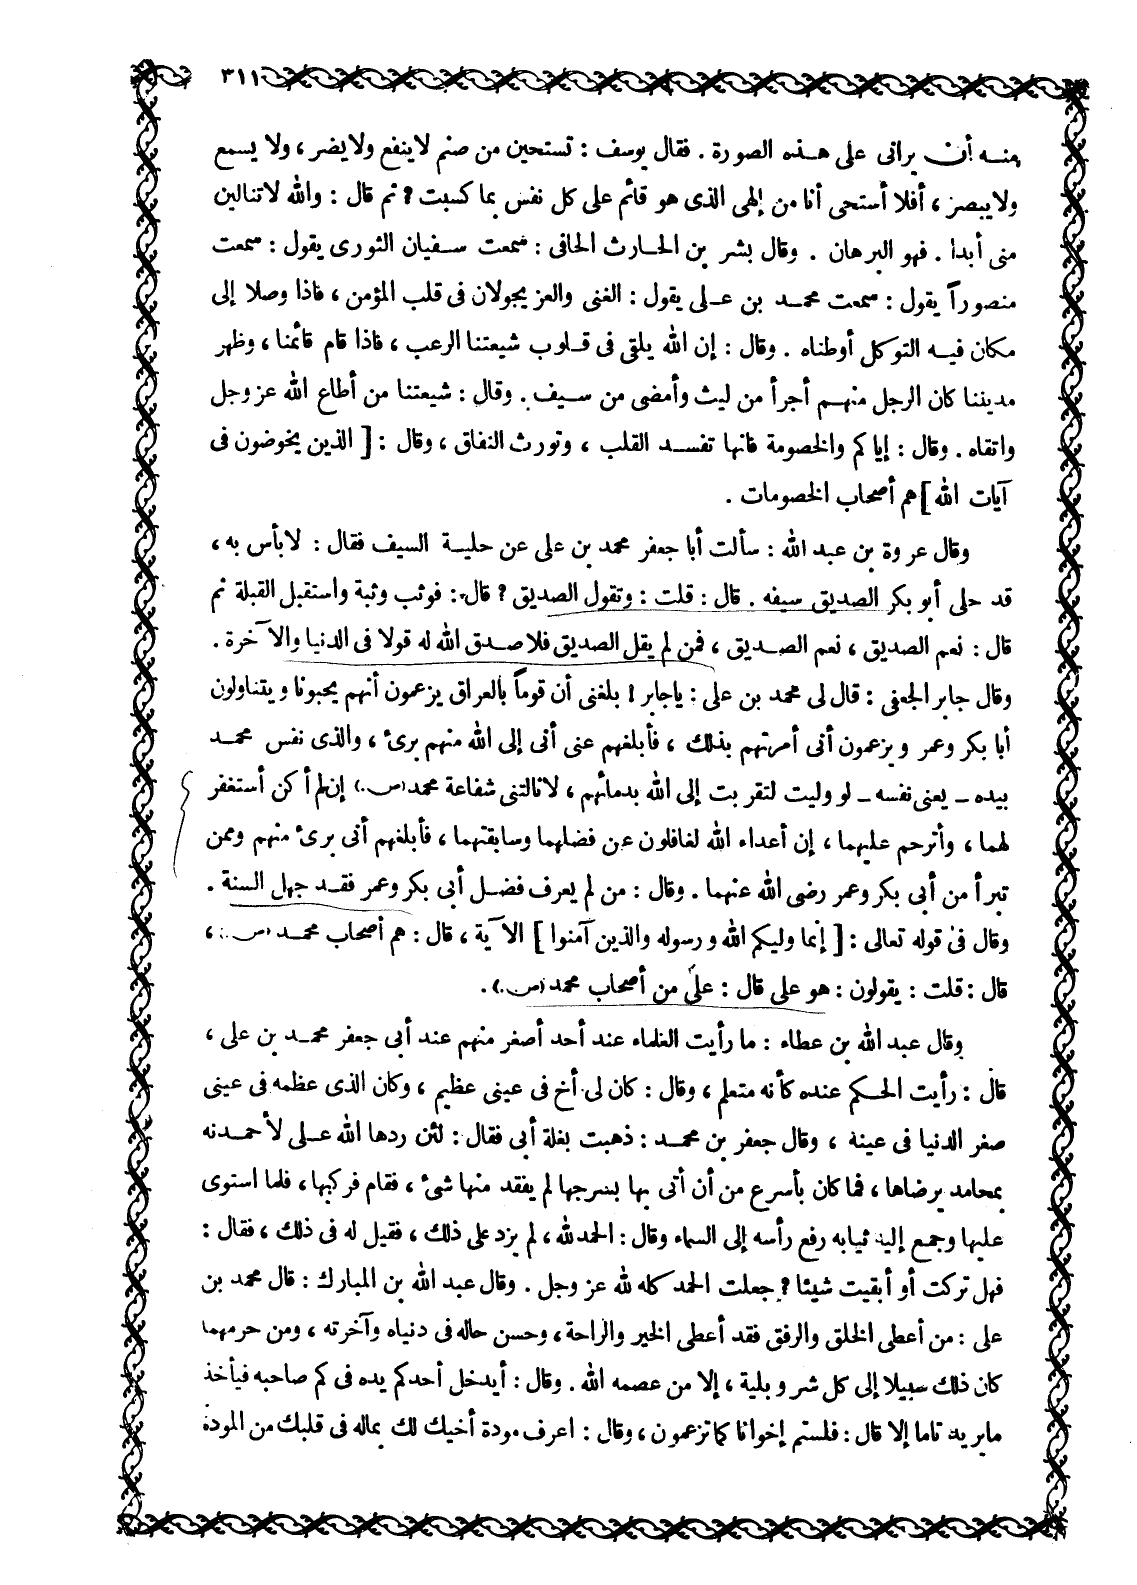 ٣١١
منه أن يرانى على هذه الصورة . فقال يوسف : تستحين من صنم لاينفع ولايضر ، ولا يسمع
ولايبصر ، أفلا أستحى أنا من إلهى الذى هو قائم على كل نفس بما كسبت ? ثم قال : والله لاتنالين
منى أبدا . فهو البرهان . وقال بشر بن الحارث الحافى : سمعت سفيان الثورى يقول : سمعت
منصوراً يقول : سمعت محمد بن على يقول : الغنى والعز يجولان فى قلب المؤمن ، فاذا وصلا إلى
مكان فيه التوكل أوطناه . وقال : إن الله يلقى فى قلوب شيعتنا الرعب ، فاذا قام قائمنا ، وظهر
مديننا كان الرجل منهم أجرأ من ليث وأمضى من سيف . وقال : شيعتنا من أطاع الله عز وجل
واتقاه . وقال : إياكم والخصومة فانها تفسد القلب ، وتورث النفاق ، وقال : [ الذين يخوضون فى
آيات الله ] هم أصحاب الخصومات .
وقال عروة بن عبد الله : سألت أبا جعفر محمد بن على عن حلية السيف فقال : لابأس به ،
قد حلى أبو بكر الصديق سيفه . قال : قلت : وتقول الصديق ? قال : فوثب وثبة واستقبل القبلة ثم
قال : نعم الصديق ، نعم الصديق ، فمن لم يقل الصديق فلا صدق الله له قولا فى الدنيا والآخرة .
وقال جابر الجعفى : قال لى محمد بن على : ياجابر ! بلغنى أن قوماً بالعراق يزعمون أنهم يحبونا ويتناولون
أبا بكر وعمر ويزعمون أنى أمرتهم بذلك ، فأبلغهم عنى أنى إلى الله منهم برئ ، والذى نفس محمد
بيده - يعنى نفسه - لو وليت لتقربت إلى الله بدمائهم ، لا نالتنى شفاعة محمد (ص.) إن لم أكن أستغفر
لهما ، وأترحم عليهما ، إن أعداء الله لغافلون عن فضلهما وسابقتهما ، فأبلغهم أنى برئ منهم وممن
تبرأ من أبى بكر وعمر رضى الله عنهما . وقال : من لم يعرف فضل أبى بكر وعمر فقد جهل السنة .
وقال فى قوله تعالى : [ إنما وليكم الله ورسوله والذين آمنوا ] الآية ، قال : هم أصحاب محمد (ص.) ،
قال : قلت : يقولون : هو على قال : علىّ من أصحاب محمد (ص.) .
وقال عبد الله بن عطاء : ما رأيت العلماء عند أحد أصغر منهم عند أبى جعفر محمد بن على ،
قال : رأيت الحكم عنده كأنه متعلم ، وقال : كان لى أخ فى عينى عظيم ، وكان الذى عظمه فى عينى
صغر الدنيا فى عينه ، وقال جعفر بن محمد : ذهبت بغلة أبى فقال : لئن ردها الله على لأحمدنه
بمحامد يرضاها ، فما كان بأسرع من أن أتى بها بسرجها لم يفقد منها شئ ، فقام فركبها ، فلما استوى
عليها وجمع إليه ثيابه رفع رأسه إلى السماء وقال : الحمد لله ، لم يزد على ذلك ، فقيل له فى ذلك ، فقال :
فهل تركت أو أبقيت شيئا ? جعلت الحمد كله لله عز وجل . وقال عبد الله بن المبارك : قال محمد بن
على : من أعطى الخلق والرفق فقد أعطى الخير والراحة ، وحسن حاله فى دنياه وآخرته ، ومن حرمهما
كان ذلك سبيلا إلى كل شر وبلية ، إلا من عصمه الله . وقال : أيدخل أحدكم يده فى كم صاحبه فيأخذ
مايريد تاما إلا قال : فلستم إخوانا كما تزعمون ، وقال : اعرف مودة أخيك لك بماله فى قلبك من المودة